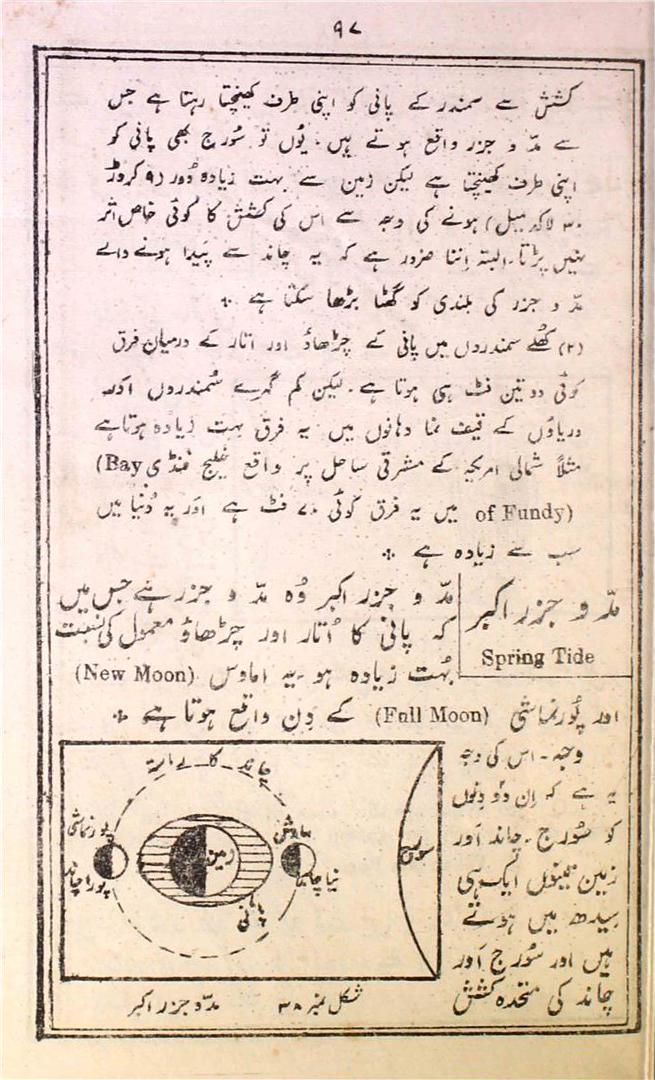 ۹۷
کشش سے سمندر کے پانی کو اپنی طرف کھینچتا رہتا ہے جس
سے مدّ و جزر واقع ہوتے ہیں۔ یُوں تو سُورج بھی پانی کو
اپنی طرف کھینچتا ہے لیکن زمین سے بہت زیادہ دُور (۹ کروڑ
۳۰ لاکھ میل) ہونے کی وجہ سے اس کی کشش کا کوئی خاص اثر
نہیں پڑتا۔ البتہ اِتنا ضرور ہے کہ یہ چاند سے پَیدا ہونے والے
مدّ و جزر کی بلندی کو گھٹا بڑھا سکتا ہے ؞
(۲) کھُلے سمندروں میں پانی کے چڑھاؤ اور اتار کے درمیان فرق
کوئی دو تین فٹ ہی ہوتا ہے۔ لیکن کم گہرے سُمندروں اور
دریاؤں کے قیف نما دہانوں میں یہ فرق بہت زیادہ ہوتا ہے
مثلاً شمالی امریکہ کے مشرقی ساحل پر واقع خلیج فنڈی (Bay
of Fundy) میں یہ فرق کوئی ۷۰ فٹ ہے اور یہ دُنیا میں
سب سے زیادہ ہے ؞
مدّ و جزر اکبر
Spring Tide
مدّ و جزر اکبر وُہ مدّ و جزر ہے جس میں
کہ پانی کا اُتار اور چڑھاؤ معمول کی نسبت
بُہت زیادہ ہو۔ یہ اماوس (New Moon)
اور پُورنماشی (Full Moon) کے دِن واقع ہوتا ہے ؞
وجہ۔ اس کی وجہ
یہ ہے کہ اِن دو دِنوں
کو سُورج۔ چاند اَور
زمین تینوں ایک ہی
سیدھ میں ہوتے
ہیں اور سُورج اَور
چاند کی متحدہ کشش
چاند کا راستہ
پورنماشی
پورا چاند
زمین
پانی
اماوس
نیا چاند
سورج
شکل نمبر ۳۸ مدّ و جزر اکبر